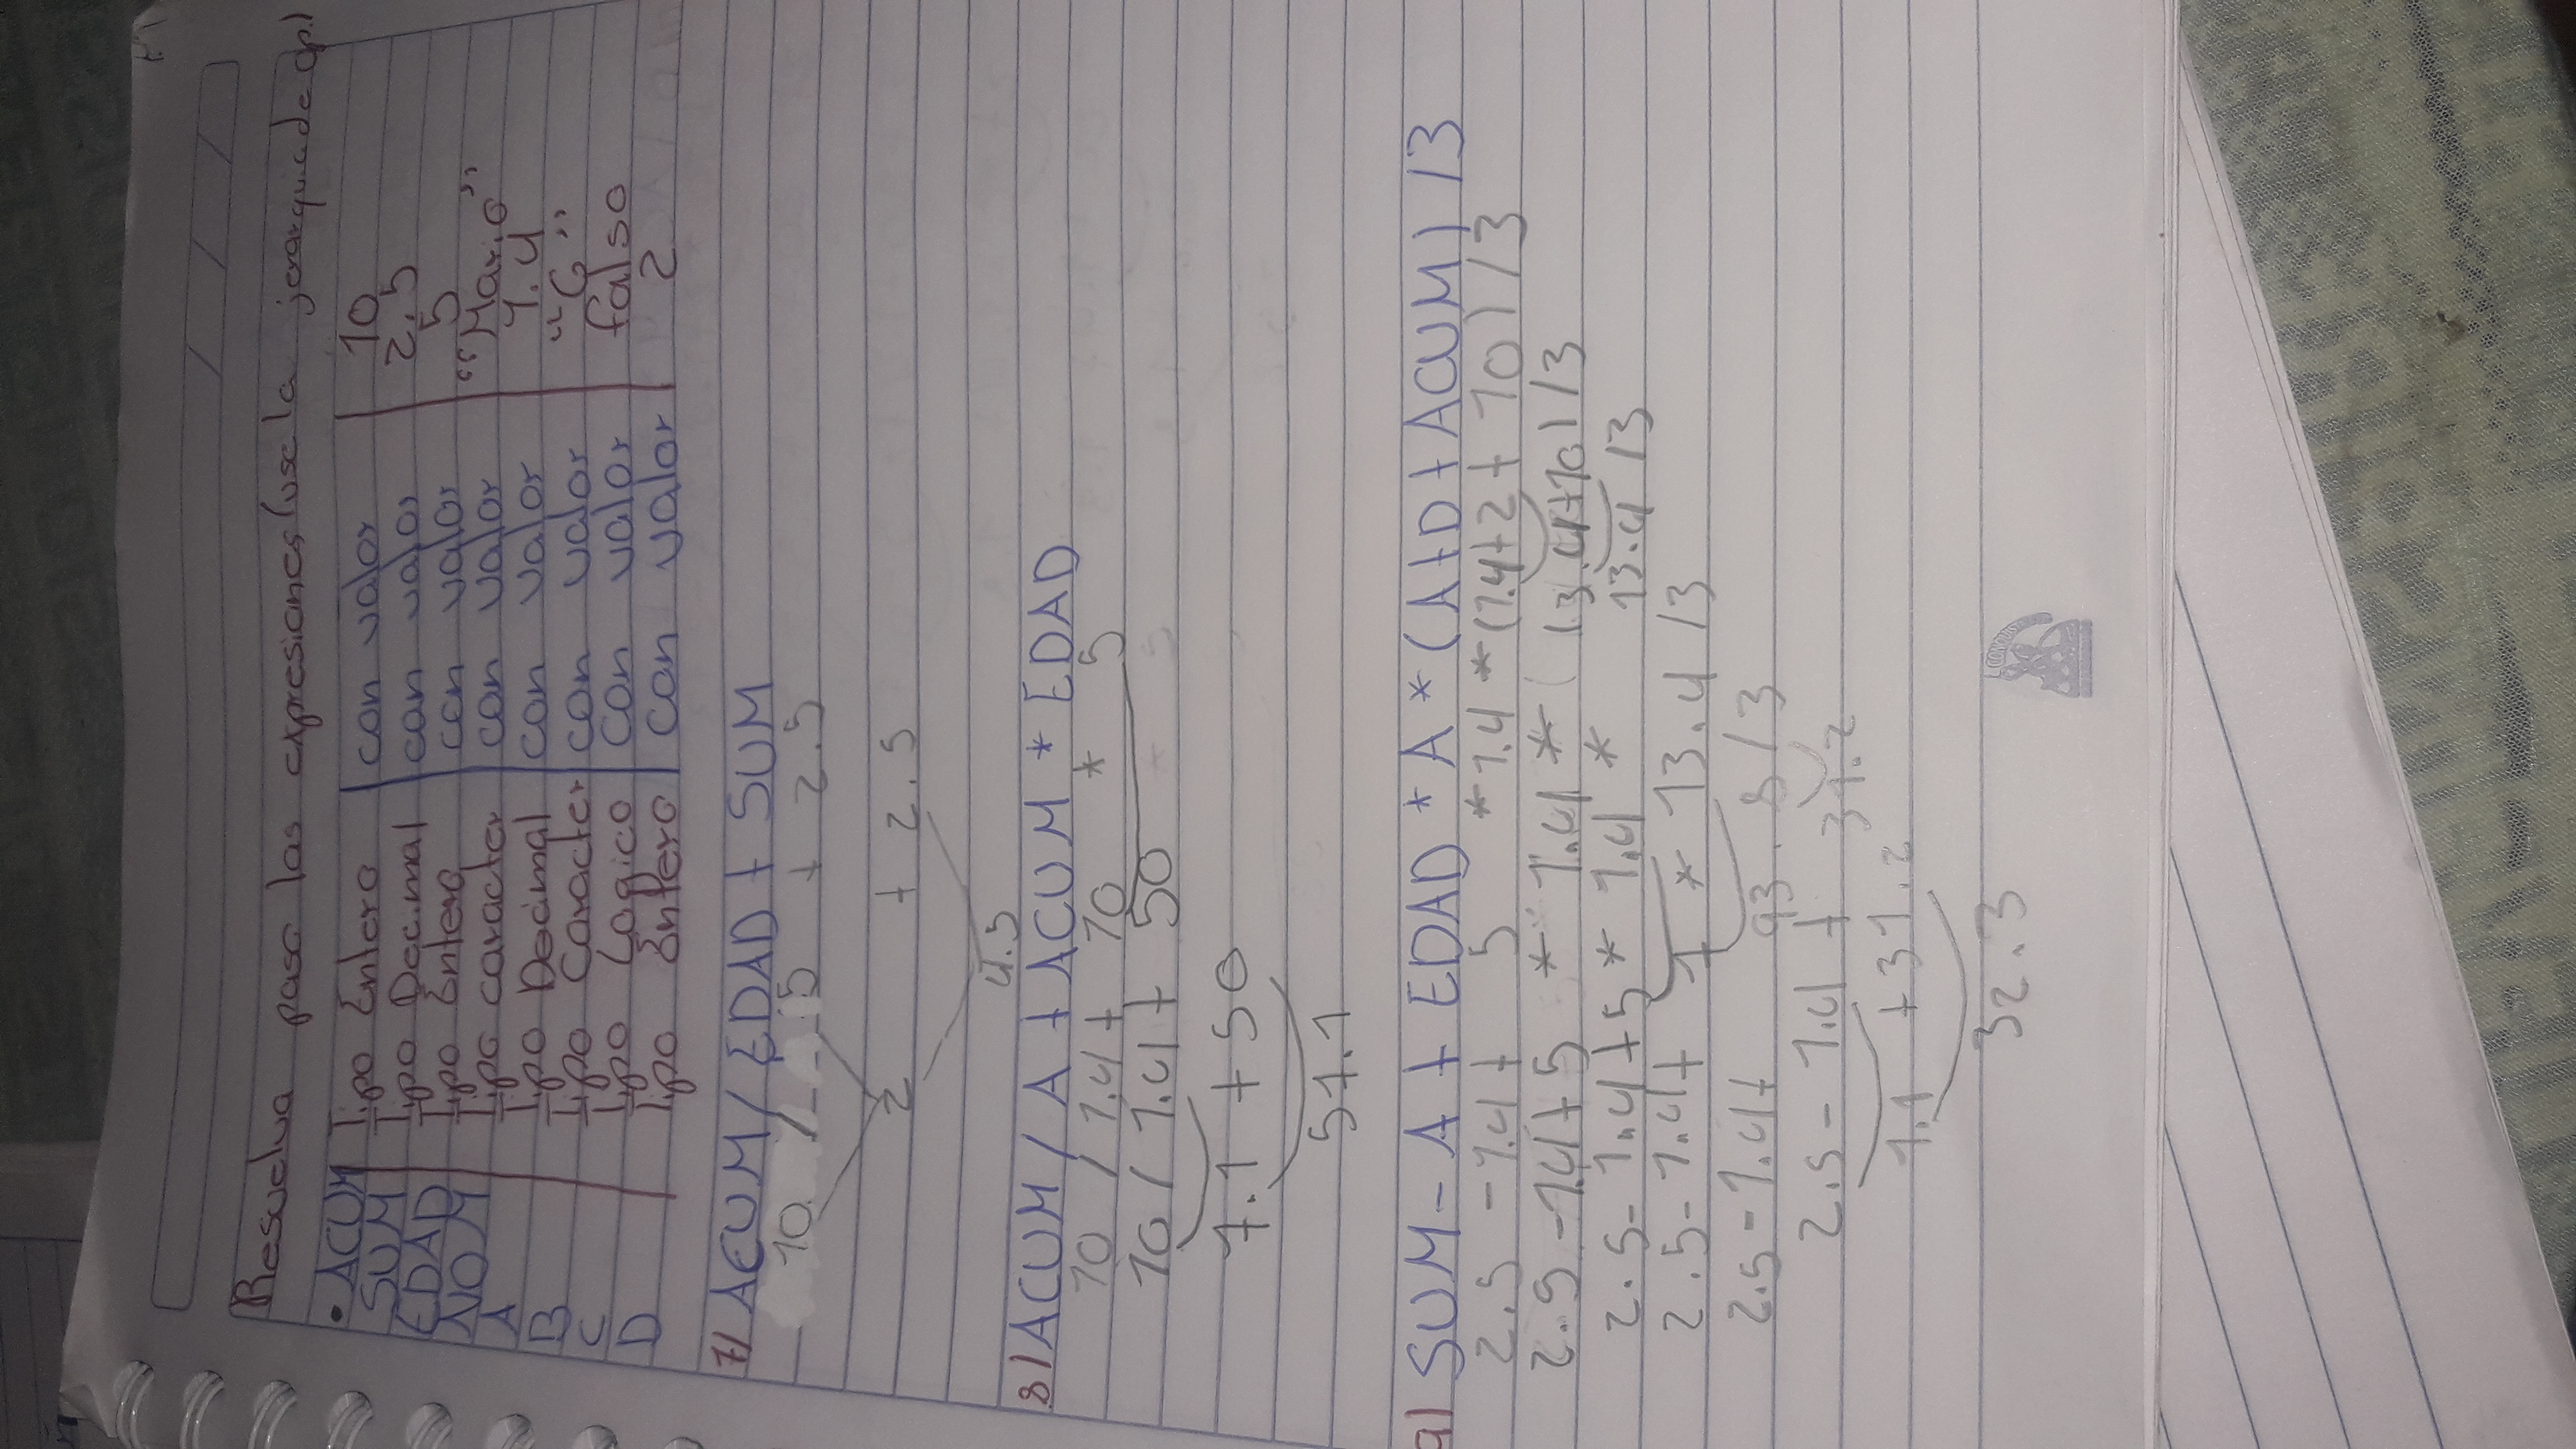 Resuelva paso las expresiones (use la jerarquia de op.)
• ACUM Tipo Entero con valor 10
SUM Tipo Decimal con valor 2.5
EDAD Tipo Entero con valor 5
NOM Tipo caracter con valor "Mario"
A Tipo Decimal con valor 1.4
B Tipo Caracter con valor "C"
C Tipo Logico con valor falso
D Tipo Entero con valor 2
7) ACUM / EDAD + SUM
10 / 5 + 2.5
2 + 2.5
4.5
8) ACUM / A + ACUM * EDAD
10 / 1.4 + 10 * 5
10 / 1.4 + 50
7.1 + 50
57.1
9) SUM - A + EDAD * A * (A + D + ACUM) / 3
2.5 - 1.4 + 5 * 1.4 * (1.4 + 2 + 10) / 3
2.5 - 1.4 + 5 * 1.4 * (3.4 + 10) / 3
2.5 - 1.4 + 5 * 1.4 * 13.4 / 3
2.5 - 1.4 + 7 * 13.4 / 3
2.5 - 1.4 + 93.8 / 3
2.5 - 1.4 + 31.2
1.1 + 31.2
32.3